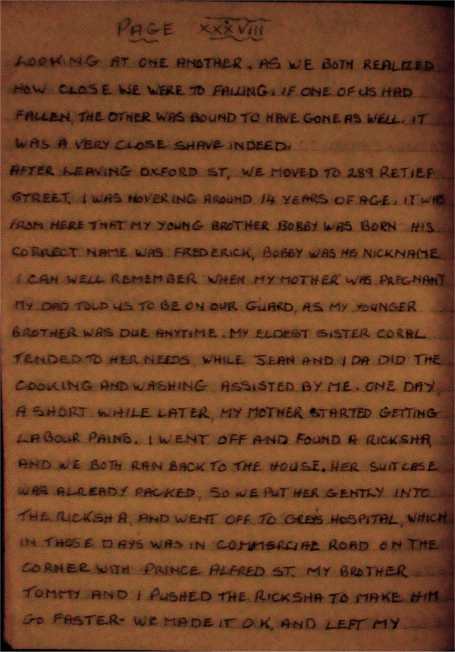 PAGE XXXVIII
LOOKING AT ONE ANOTHER. AS WE BOTH REALIZED
HOW CLOSE WE WERE TO FALLING. IF ONE OF US HAD
FALLEN, THE OTHER WAS BOUND TO HAVE GONE AS WELL. IT
WAS A VERY CLOSE SHAVE INDEED.
AFTER LEAVING OXFORD ST, WE MOVED TO 289 RETIEF
STREET. I WAS HOVERING AROUND 14 YEARS OF AGE. IT WAS
FROM HERE THAT MY YOUNG BROTHER BOBBY WAS BORN HIS
CORRECT NAME WAS FREDERICK, BOBBY WAS HIS NICKNAME
I CAN WELL REMEMBER WHEN MY MOTHER WAS PREGNANT
MY DAD TOLD US TO BE ON OUR GUARD, AS MY YOUNGER
BROTHER WAS DUE ANYTIME. MY ELDEST SISTER CORAL
TENDED TO HER NEEDS, WHILE JEAN AND IDA DID THE
COOKING AND WASHING ASSISTED BY ME. ONE DAY,
A SHORT WHILE LATER, MY MOTHER STARTED GETTING
LABOUR PAINS. I WENT OFF AND FOUND A RICKSHA,
AND WE BOTH RAN BACK TO THE HOUSE. HER SUITCASE
WAS ALREADY PACKED, SO WE PUT HER GENTLY INTO
THE RICKSHA, AND WENT OFF TO GREY'S HOSPITAL, WHICH
IN THOSE DAYS WAS IN COMMERCIAL ROAD ON THE
CORNER WITH PRINCE ALFRED ST. MY BROTHER
TOMMY AND I PUSHED THE RICKSHA TO MAKE HIM
GO FASTER- WE MADE IT O.K, AND LEFT MY